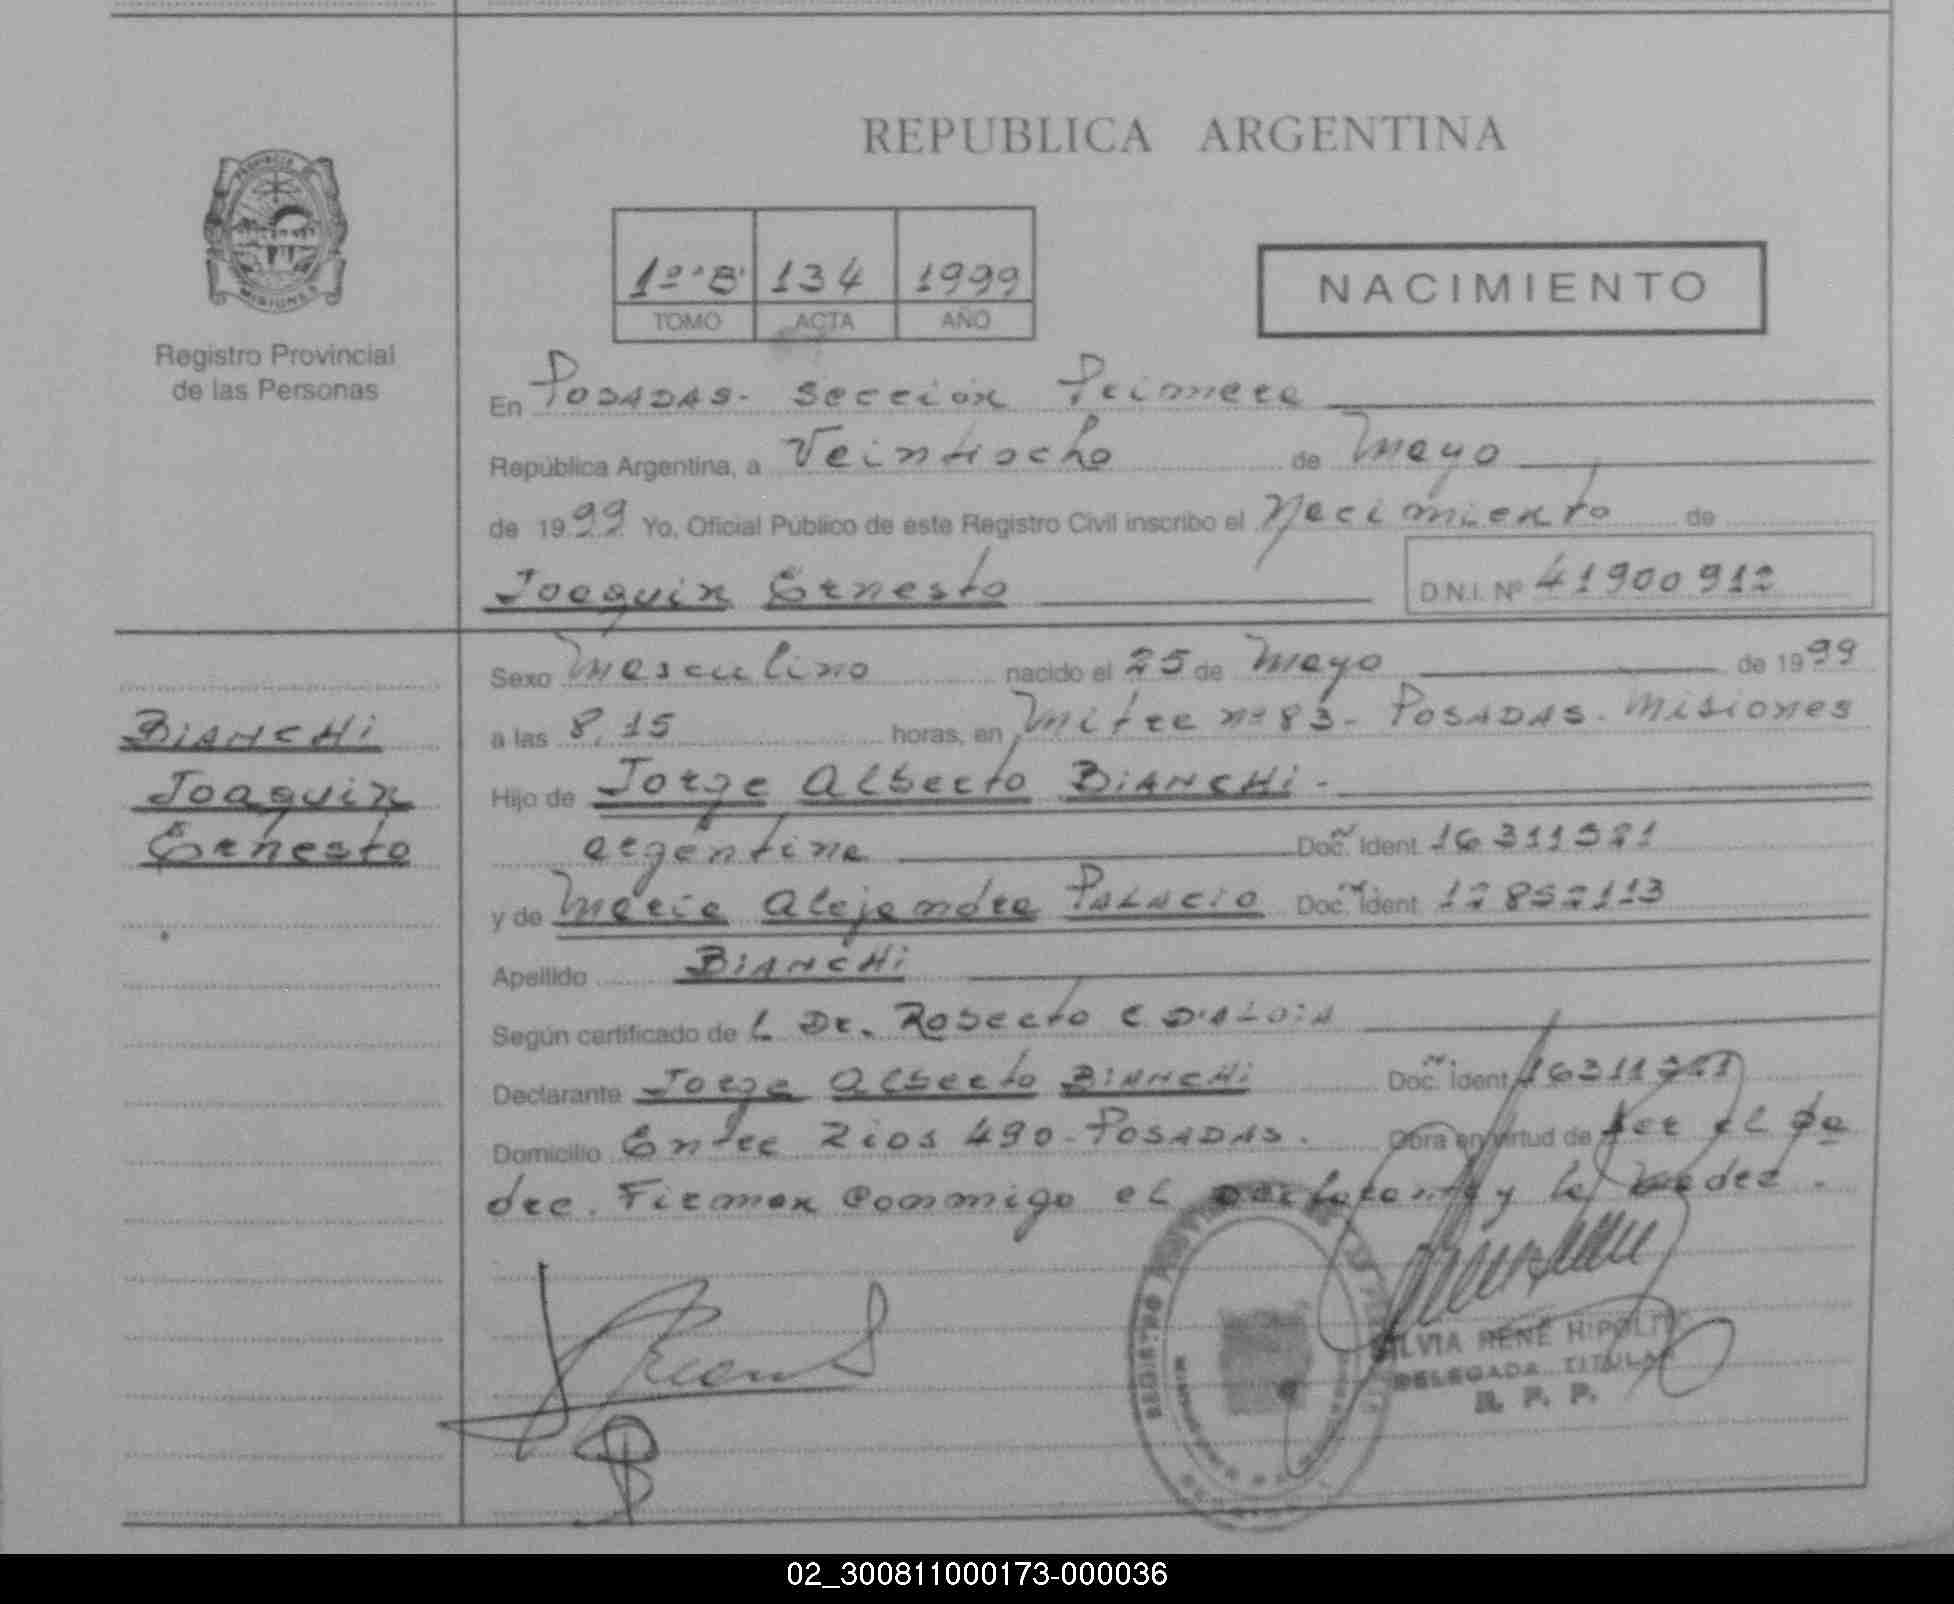 REPUBLICA ARGENTINA
PROVINCIA
MISIONES
Registro Provincial
de las Personas
1º "B" 134 1999
TOMO ACTA AÑO
NACIMIENTO
En POSADAS- Sección Primera
República Argentina, a Veintiocho de Mayo
de 1999 Yo, Oficial Público de este Registro Civil inscribo el Nacimiento de
Joaquin Ernesto D.N.I. Nº 41900912
Sexo Masculino nacido el 25 de Mayo de 1999
BIANCHI
Joaquin
Ernesto
a las 8,15 horas, en Mitre nº 83- POSADAS- Misiones
Hijo de Jorge Alberto BIANCHI-
argentina Doc. Ident.
y de Maria Alejandra PALACIO Doc. Ident. 12852113
Apellido BIANCHI
Según certificado de L Dr. Roberto
Declarante Jorge Alberto BIANCHI Doc. Ident.
Domicilio Entre Rios 490-POSADAS. Obra en virtud de ser el pa
dre. Firman Conmigo el declarante y la madre.
REGISTRO
SILVIA RENÉ HIPOLITO
DELEGADA TITULAR
R. P. P.
02_300811000173-000036